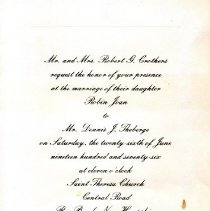 Mr. and Mrs. Robert G. Crothers
request the honor of your presence
at the marriage of their daughter
Robin Joan
to
Mr. Dennis J. Theberge
on Saturday, the twenty-sixth of June
nineteen hundred and seventy-six
at eleven o'clock
Saint Theresa Church
Central Road
Rye Beach, New Hampshire